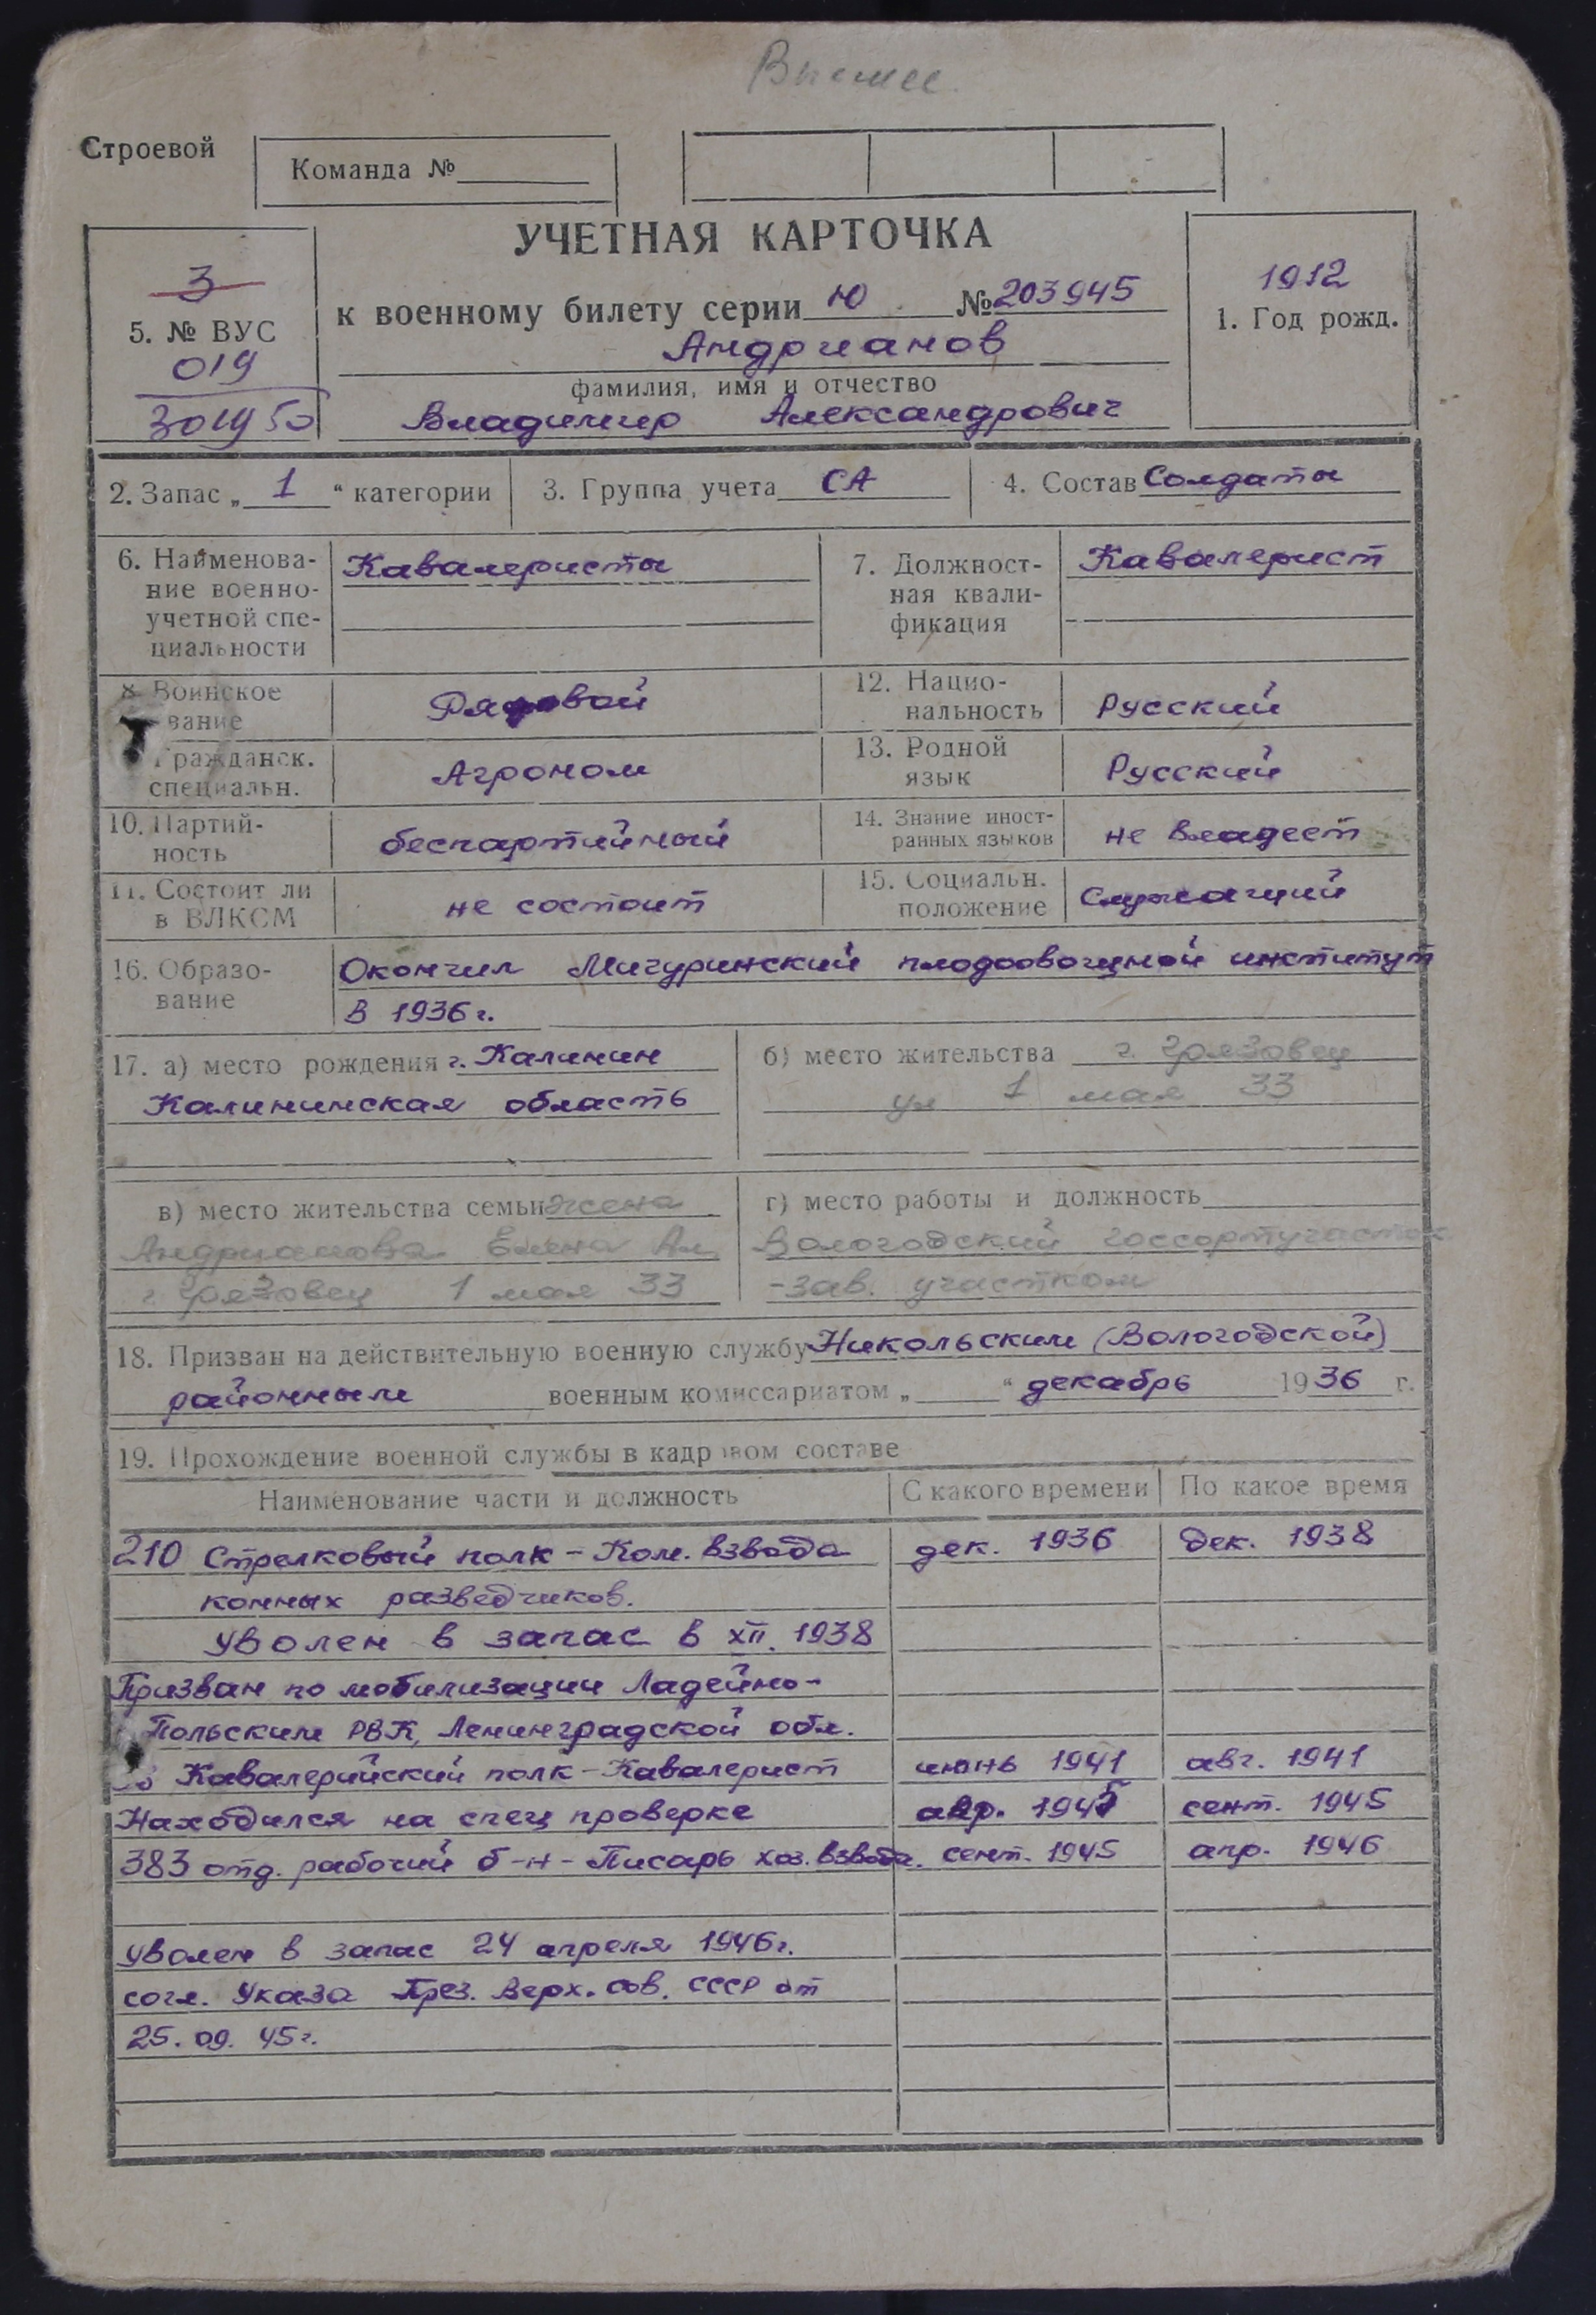 Высшее
Строевой
Команда №
УЧЕТНАЯ КАРТОЧКА
к военному билету серии Ю №203945
3
5. № ВУС
019
301950
1912
1. Год рожд.
Андрианов
фамилия, имя и отчество
Владимир Александрович
2. Запас „ 1 “ категории
3. Группа учета СА
4. Состав Солдаты
6. Наименова-
ние военно-
учетной спе-
циальности
Кавалеристы
7. Должност-
ная квали-
фикация
Кавалерист
8. Воинское
вание
Рядовой
12. Нацио-
нальность
Русский
Гражданск.
специальн.
Агроном
13. Родной
язык
Русский
10. Партий-
ность
беспартийный
14. Знание иност-
ранных языков
не владеет
11. Состоит ли
в ВЛКСМ
не состоит
15. Социальн.
положение
Служащий
16. Образо-
вание
Окончил Мичуринский плодоовощной институт
в 1936 г.
17. а) место рождения г. Калинин
Калининская область
б) место жительства г. Грязовец
ул 1 мая 33
в) место жительства семьи жена
Андрианова Елена Ал
г. Грязовец 1 мая 33
г) место работы и должность
Вологодский госсортучасток
-зав. участком
18. Призван на действительную военную службу Никольским (Вологодской)
районным военным комиссариатом „ “ декабрь 1936 г.
19. Прохождение военной службы в кадровом составе
Наименование части и должность С какого времени По какое время
210 Стрелковый полк - Ком. взвода дек. 1936 дек. 1938
конных разведчиков.
Уволен в запас в XII. 1938
Призван по мобилизации Ладейно-
Польским РВК, Ленинградской обл.
Кавалерийский полк - Кавалерист июнь 1941 авг. 1941
Находился на спец проверке апр. 1945 сент. 1945
383 отд. рабочий б-н - Писарь хоз. взвода. сент. 1945 апр. 1946
Уволен в запас 24 апреля 1946г.
согл. Указа През. Верх. Сов. СССР от
25. 09. 45 г.